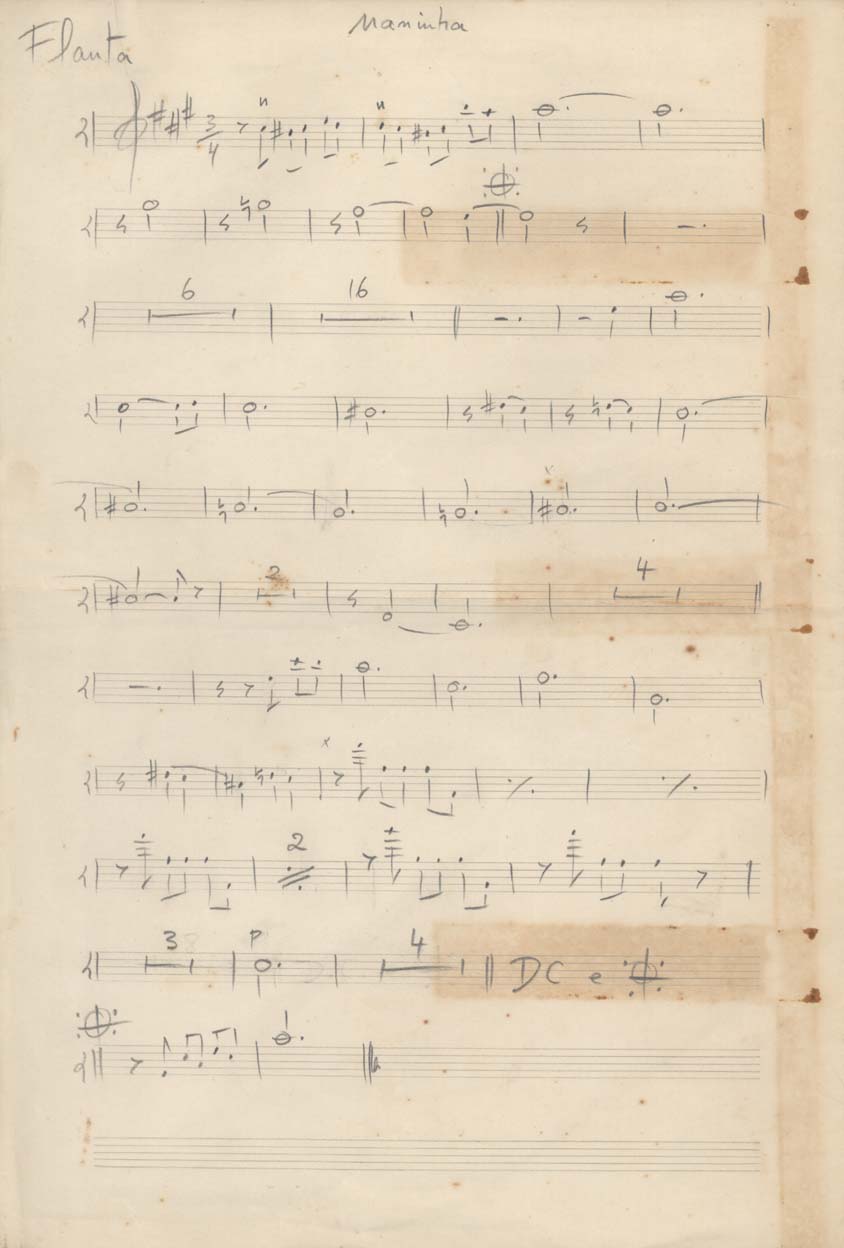 Maninha
Flauta
3
4
6 16
2 4
2
3 P 4 DC e